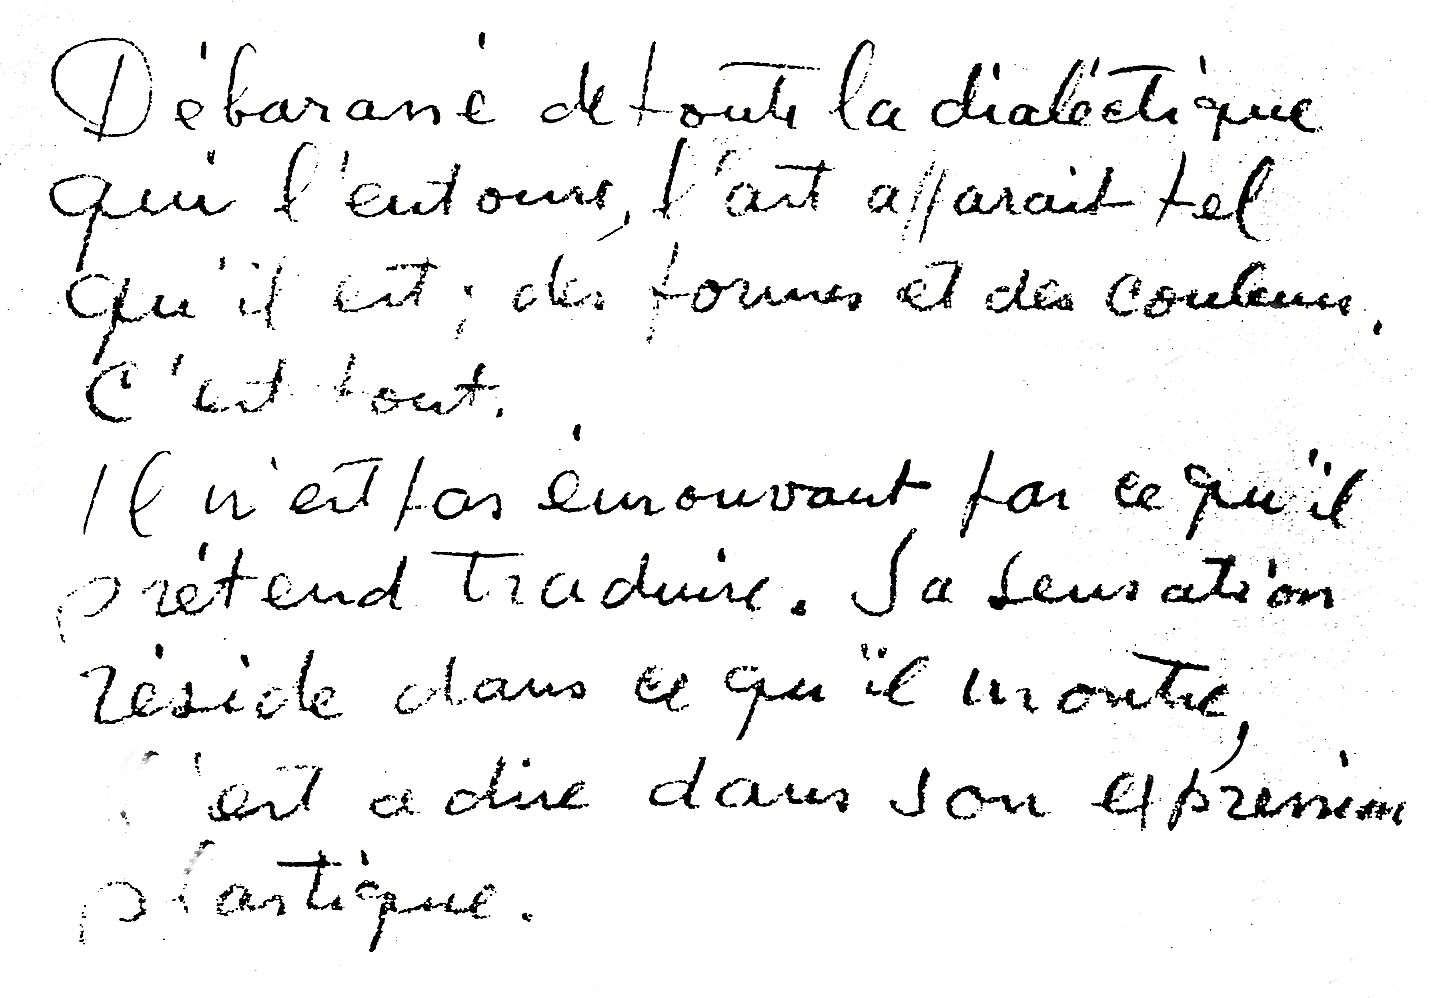 Débarassé de toute la dialectique
qui l'entoure, l'art apparait tel
qu'il est ; des formes et des couleurs.
C'est tout.
Il n'est pas émouvant par ce qu'il
prétend traduire. Sa sensation
réside dans ce qu'il montre,
c'est a dire dans son expression
plastique.